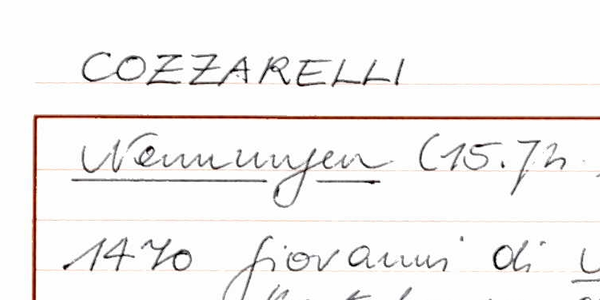 COZZARELLI
Nennungen (15. Jh.
1470 Giovanni di